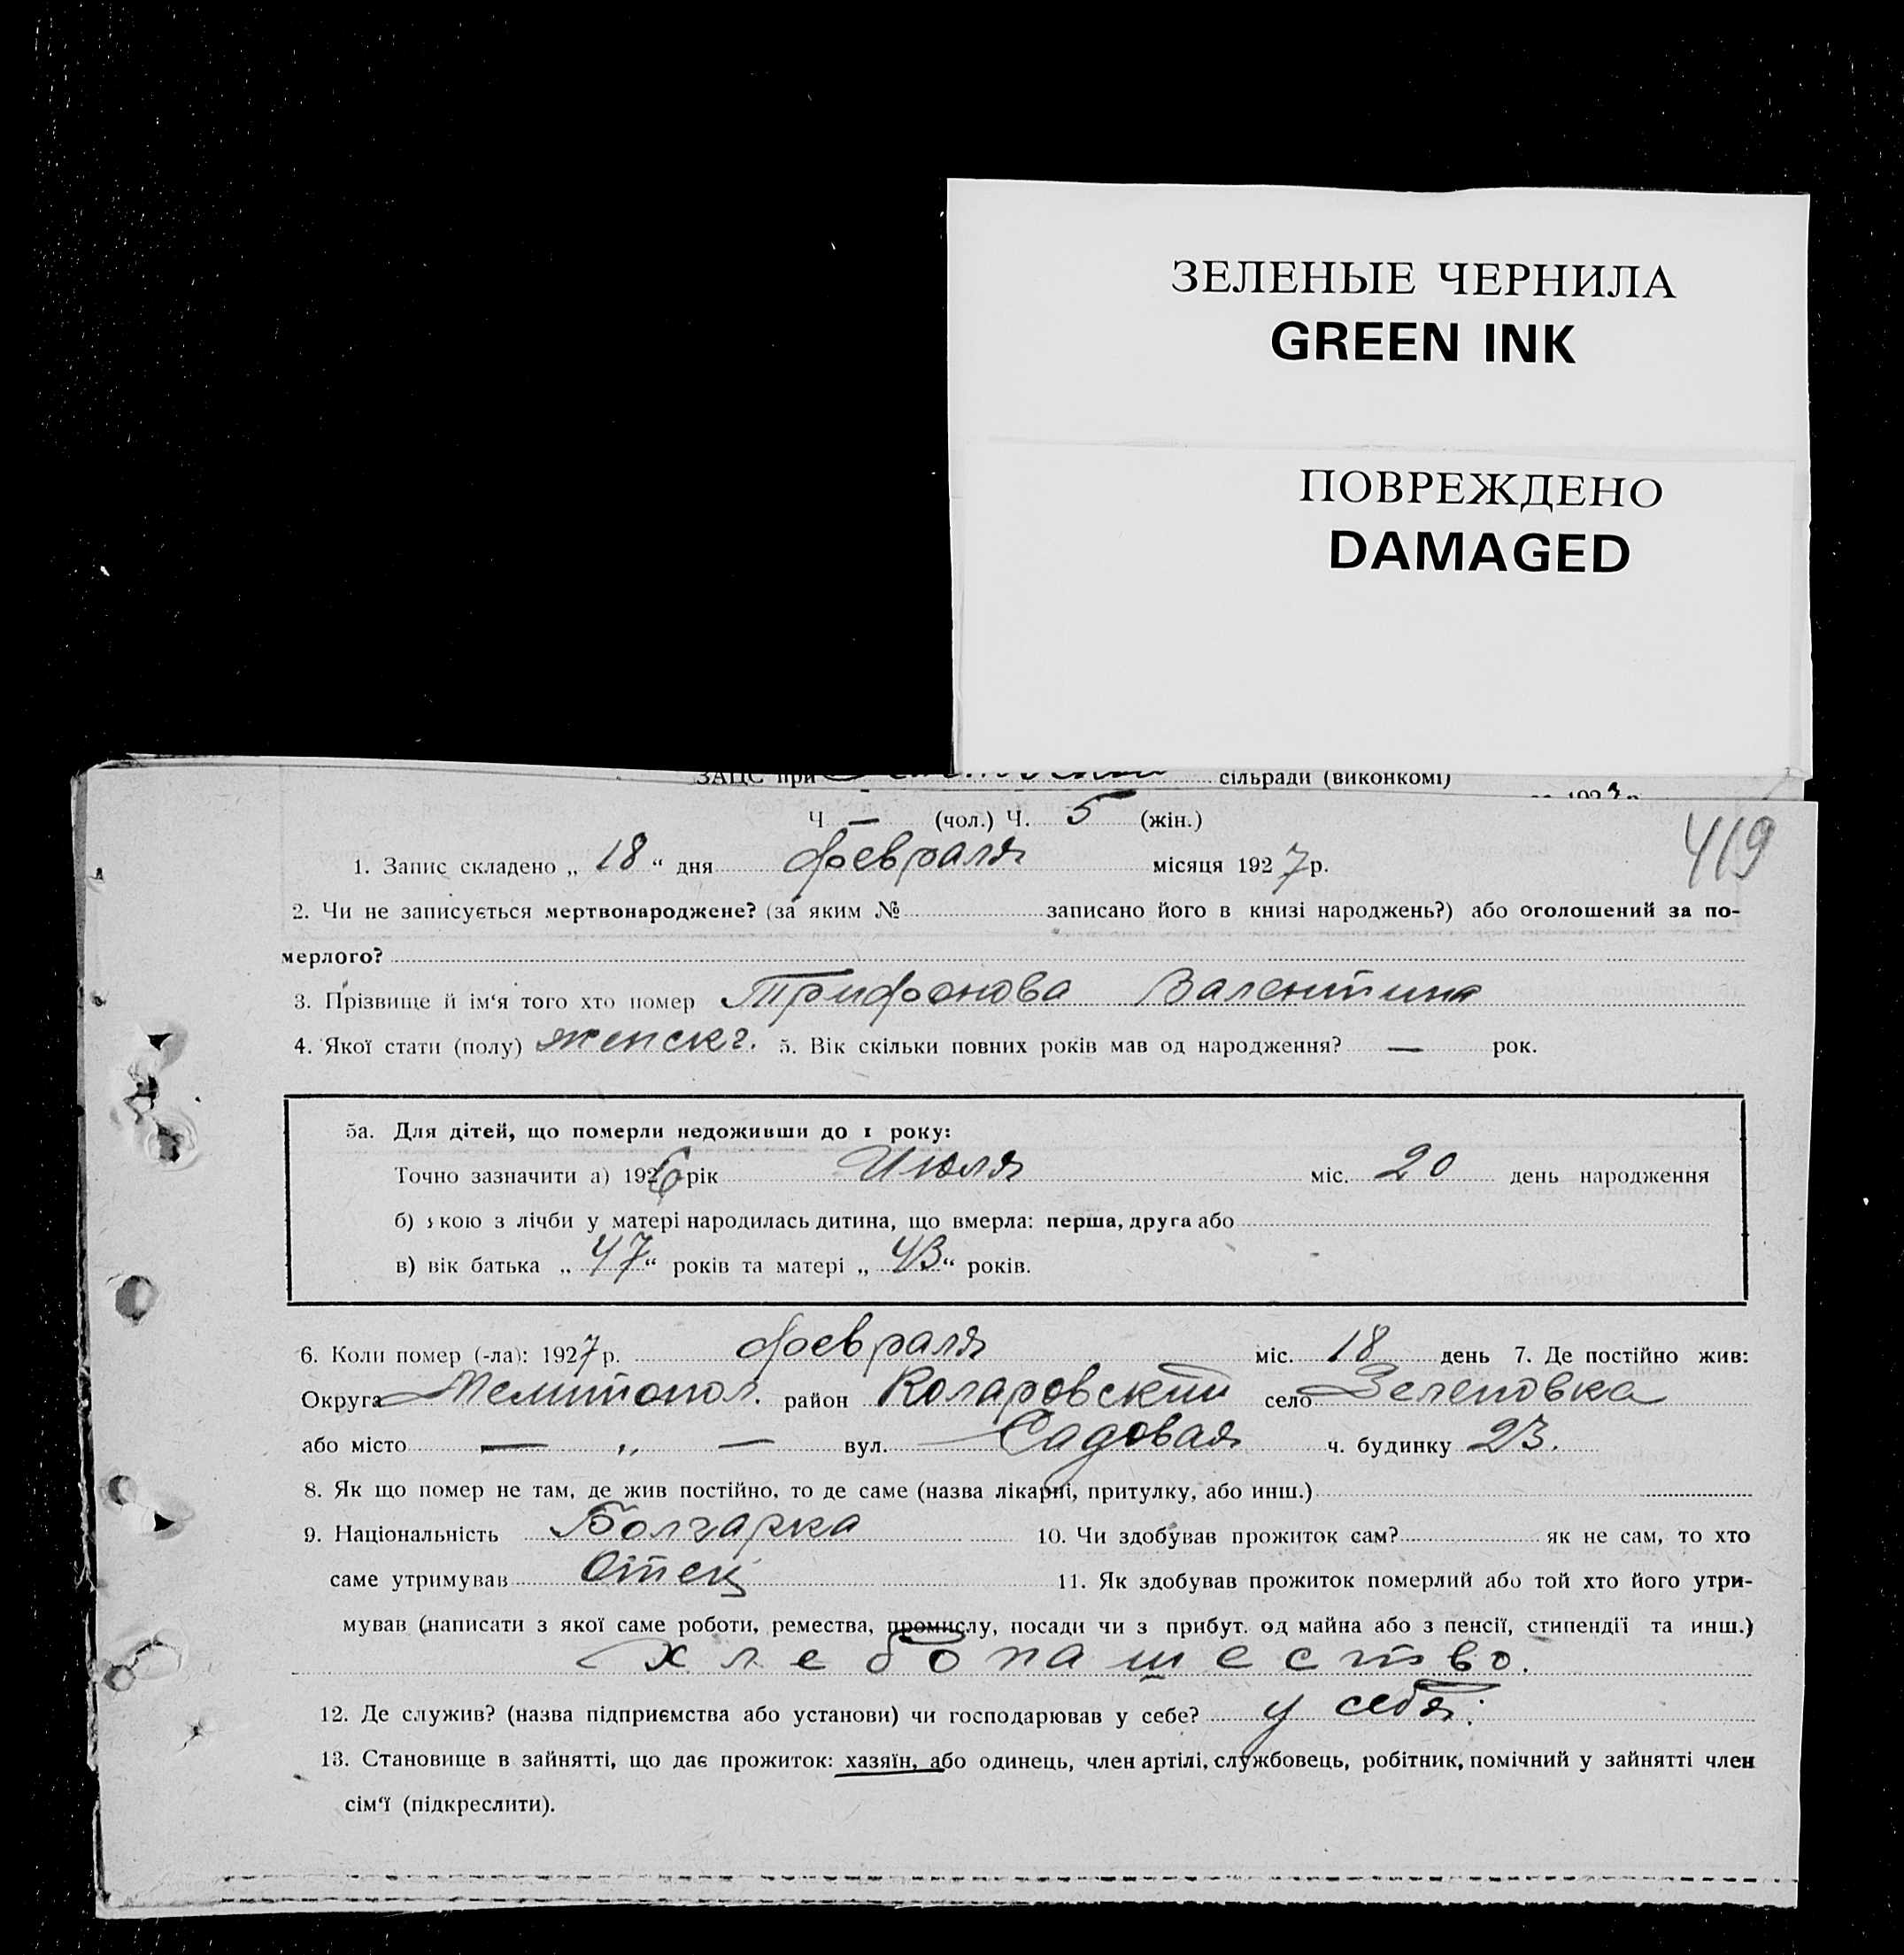 ЗЕЛЕНЫЕ ЧЕРНИЛА
GREEN INK
ПОВРЕЖДЕНО
DAMAGED
ЗАЦС при сільради (виконкомі)
Ч — (чол.) Ч. 5 (жін.)
419
1. Запис складено „ 18 “ дня февраля місяця 1927 р.
2. Чи не записується мертвонароджене? (за яким № записано його в книзі народжень?) або оголошений за по-
мерлого?
3. Прізвище й ім‘я того хто помер Трифонова Валентина
4. Якої стати (полу) женск. 5. Вік скільки повних років мав од народження? — рок.
5а. Для дітей, що померли недоживши до 1 року:
Точно зазначити а) 1926 рік Июля міс. 20 день народження
б) якою з лічби у матері народилась дитина, що вмерла: перша, друга або
в) вік батька „ 47 “ років та матері „ 43 “ років.
6. Коли помер (-ла): 1927 р. февраля міс. 18 день 7. Де постійно жив:
Округа Мелитопол. район Коларовский село Зеленовка
або місто — „ — вул. Садовая ч. будинку 23.
8. Як що помер не там, де жив постійно, то де саме (назва лікарні, притулку, або инш.)
9. Національність Болгарка 10. Чи здобував прожиток сам? як не сам, то хто
саме утримував Отец 11. Як здобував прожиток померлий або той хто його утри-
мував (написати з якої саме роботи, ремества, промислу, посади чи з прибут. од майна або з пенсії, стипендії та инш.)
хлебопашество.
12. Де служив? (назва підприємства або установи) чи господарював у себе? у себя.
13. Становище в зайнятті, що дає прожиток: хазяїн, або одинець, член артілі, службовець, робітник, помічний у зайнятті член
сім‘ї (підкреслити).